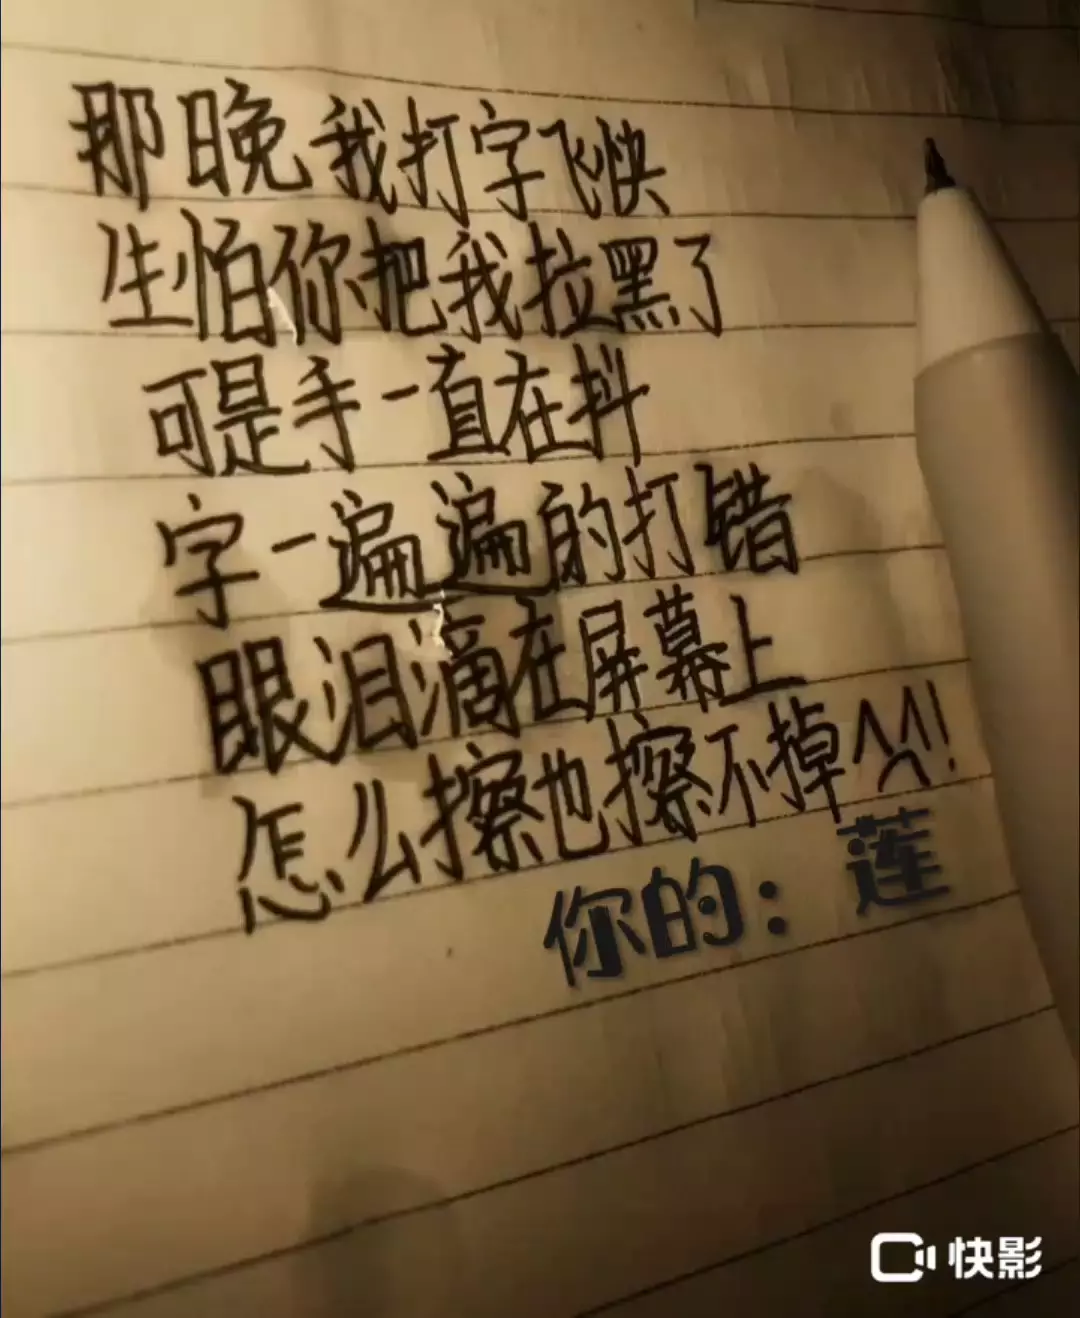 那晚我打字飞快
生怕你把我拉黑了
可是手一直在抖
字一遍遍的打错
眼泪滴在屏幕上
怎么擦也擦不掉^^!
你的：莲
快影